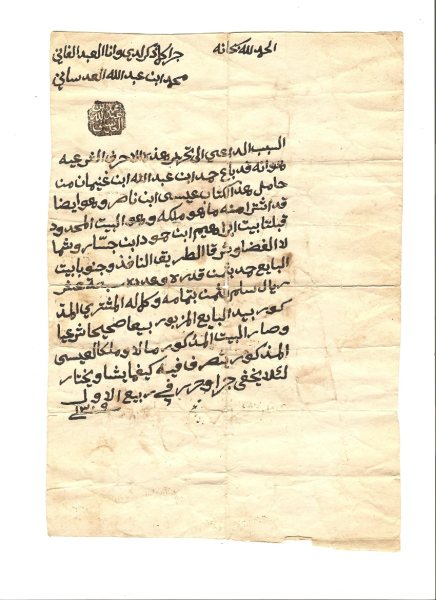 الحمد لله سبحانه
جرا ما ذكر لدي وانا العبد الفاني
محمد ابن عبد الله العدساني
السبب الداعي الى تحرير هذه الاحرف الشرعيه
هو انه قد باع حمد ابن عبد الله ابن غنيمان من
حامل هذا الكتاب عيسى ابن ناصر وهو ايضا
قد اشترا منه ما هو ملكه وهو البيت المحدود
قبلتا بيت ابراهيم ابن حمود ابن حسار وشمالا
الفضا وشرقا الطريق النافذ وجنوبا بيت
البايع حمد بثمن قدره وعدده عشر
ريال سلم الثمن بتمامه وكماله المشتري المذ
كور بيد البايع المزبور بيعا صحيحا شرعيا
وصار البيت المذكور مالا وملكا لعيسى
المذكور يتصرف فيه كيفما يشا ويختار
لئلا يخفى جرا وحرر في ربيع الاولى
١٣٠٩